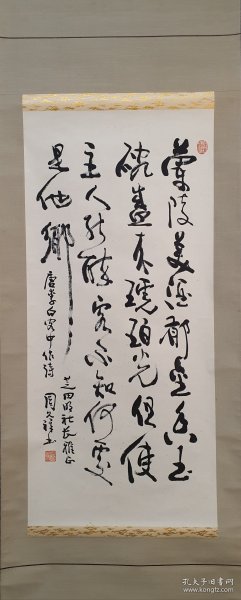 蘭陵美酒郁金香玉
碗盛来琥珀光但使
主人能醉客不知何處
是他鄉 唐李白客中作詩
芝田明社長雅正
周書
孔夫子旧书网
www.kongfz.com